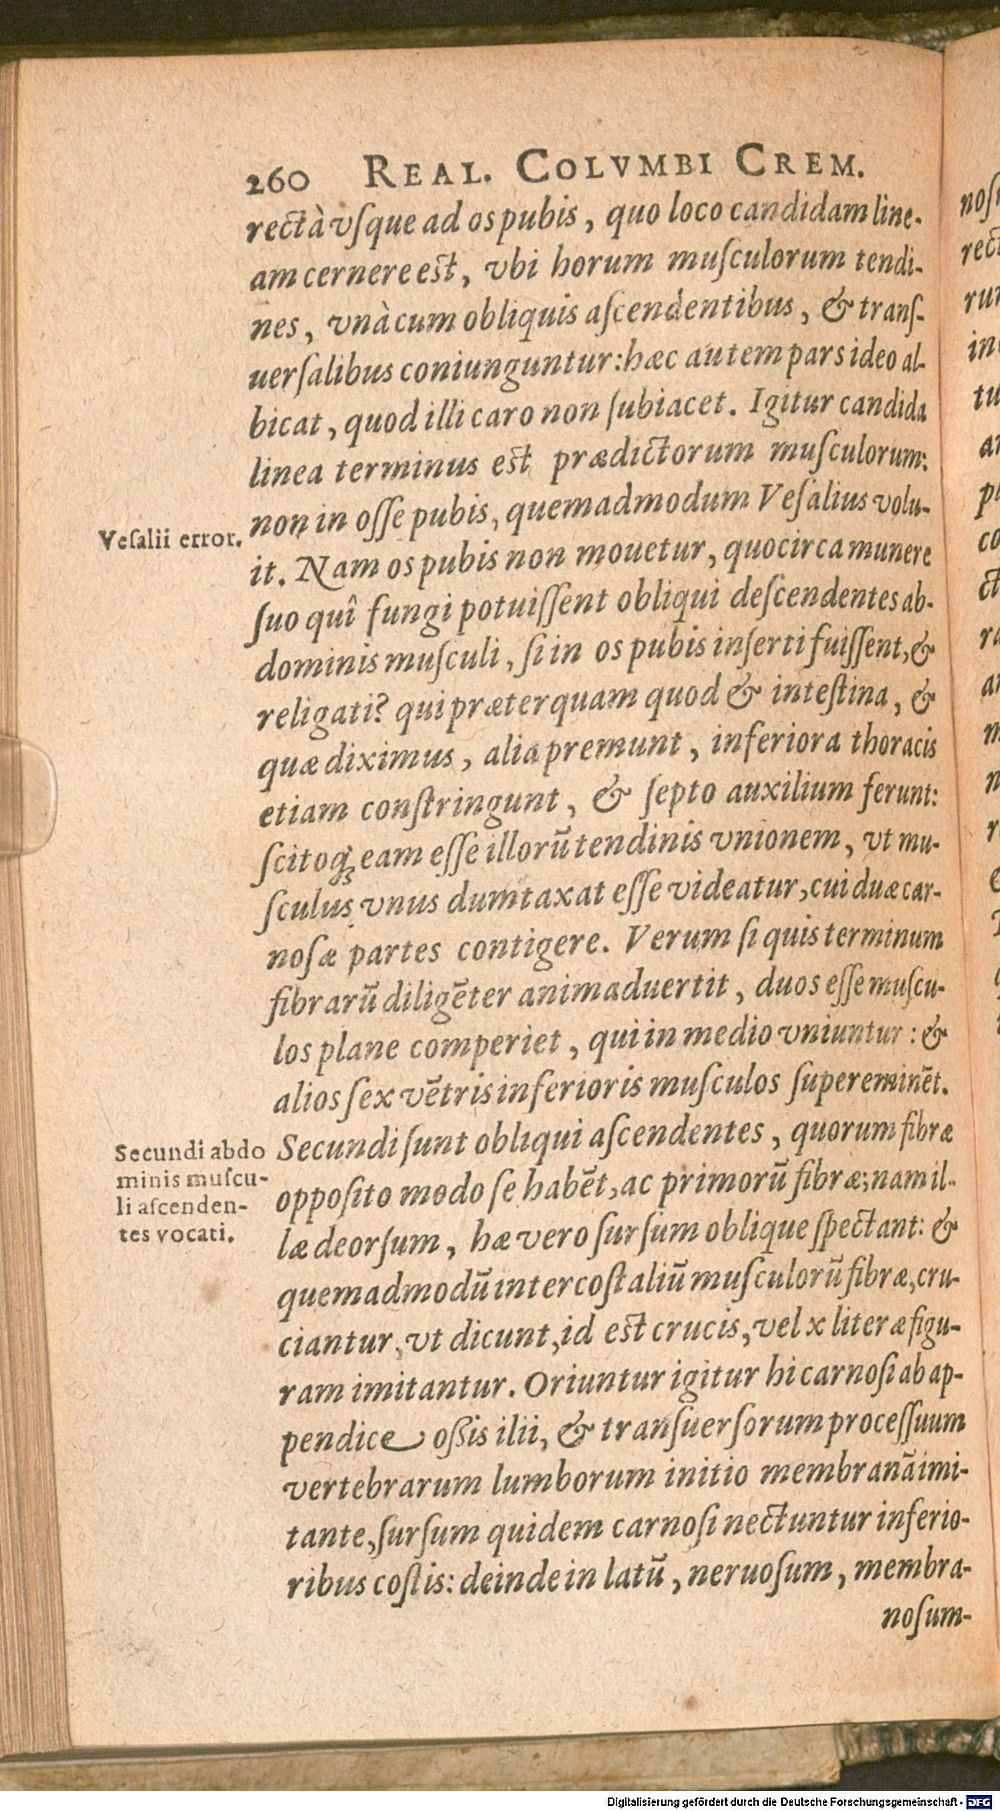 260 REAL. COLVMBI CREM.
rectà vſque ad os pubis, quo loco candidam line-
am cernere eſt, vbi horum muſculorum tendi-
nes, vnà cum obliquis aſcendentibus, & tranſ-
uerſalibus coniunguntur: hæc autem pars ideo al-
bicat, quod illi caro non ſubiacet. Igitur candida
linea terminus eſt prædictorum muſculorum:
Veſalii error.
non in oſſe pubis, quemadmodum Veſalius volu-
it. Nam os pubis non mouetur, quocirca munere
ſuo quî fungi potuiſſent obliqui deſcendentes ab-
dominis muſculi, ſi in os pubis inſerti fuiſſent, &
religati? qui præterquam quod & inteſtina, &
quæ diximus, alia premunt, inferiora thoracis
etiam conſtringunt, & ſepto auxilium ferunt:
ſcitoq́ꝫ eam eſſe illorū tendinis vnionem, vt mu-
ſculus vnus dumtaxat eſſe videatur, cui duæ car-
noſæ partes contigere. Verum ſi quis terminum
fibrarū diligẽter animaduertit, duos eſſe muſcu-
los plane comperiet, qui in medio vniuntur: &
alios ſex vẽtris inferioris muſculos ſupereminẽt.
Secundi abdo
minis muſcu-
li aſcenden-
tes vocati.
Secundi ſunt obliqui aſcendentes, quorum fibræ
oppoſito modo ſe habẽt, ac primorū fibræ; nam il-
læ deorſum, hæ vero ſurſum oblique ſpectant: &
quemadmodū intercoſtaliū muſculorū fibræ, cru-
ciantur, vt dicunt, id eſt crucis, vel x literæ figu-
ram imitantur. Oriuntur igitur hi carnoſi ab ap-
pendice oßis ilii, & tranſuerſorum proceſſuum
vertebrarum lumborum initio membranā imi-
tante, ſurſum quidem carnoſi nectuntur inferio-
ribus coſtis: deinde in latū, neruoſum, membra-
noſum-
Digitalisierung gefördert durch die Deutsche Forschungsgemeinschaft - DFG